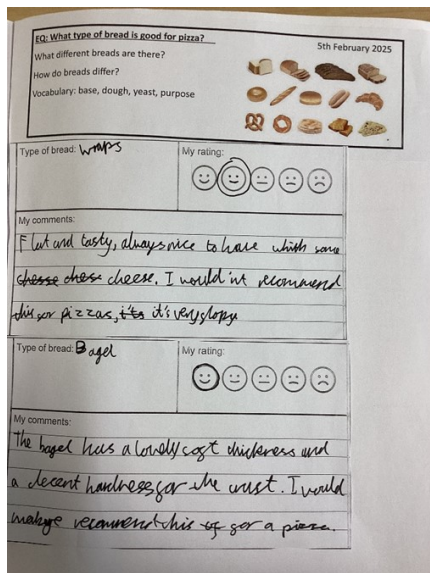 EQ: What type of bread is good for pizza?
5th February 2025
What different breads are there?
How do breads differ?
Vocabulary: base, dough, yeast, purpose
Type of bread: Wraps
My rating:
My comments:
Flat and tasty, always nice to have whith some
chesse chese cheese. I would'nt recommend
this for pizzas, it's it's very slopy
Type of bread: Bagel
My rating:
My comments:
The bagel has a lovely soft thickness and
a decent hardness for the crust. I would
recommend this of for a pizza.